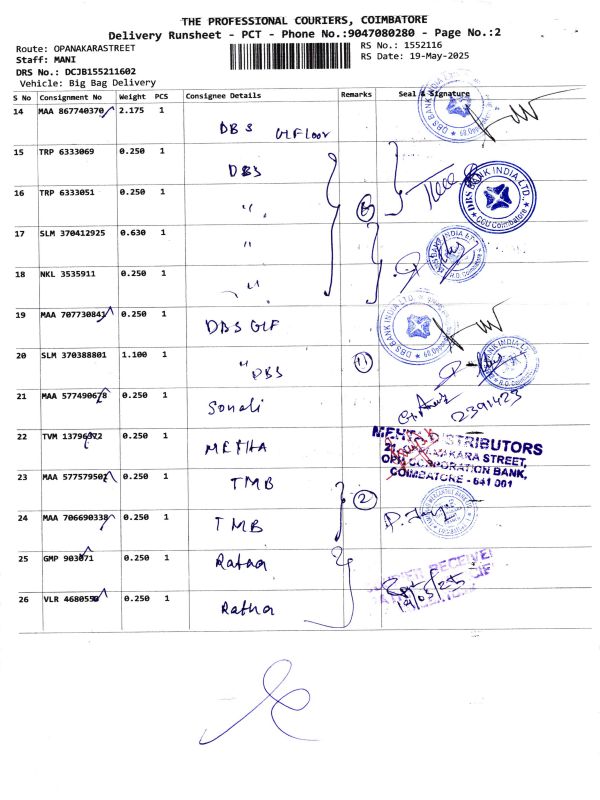 THE PROFESSIONAL COURIERS, COIMBATORE
Delivery Runsheet - PCT - Phone No.:9047080280 - Page No.:2
Route: OPANAKARASTREET
RS No.: 1552116
Staff: MANI
RS Date: 19-May-2025
DRS No.: DCJB155211602
Vehicle: Big Bag Delivery
S No Consignment No Weight PCS Consignee Details Remarks Seal & Signature
14 MAA 867740370 2.175 1 DBS GLFloor
15 TRP 6333069 0.250 1 DBS
16 TRP 6333051 0.250 1 "
17 SLM 370412925 0.630 1 "
18 NKL 3535911 0.250 1 "
19 MAA 707730841 0.250 1 DBS GLF
20 SLM 370388801 1.100 1 " DBS 11
21 MAA 577490678 0.250 1 Sonali
22 TVM 13796 0.250 1 METHA
DISTRIBUTORS
KARA STREET,
CORPORATION BANK,
COIMBATORE - 641 001
23 MAA 577579502 0.250 1 TMB 2
24 MAA 706690338 0.250 1 TMB
25 GMP 903071 0.250 1 Ratna
26 VLR 4680550 0.250 1 Ratna
19/05/25
DBS BANK INDIA LTD.
CBU Coimbatore